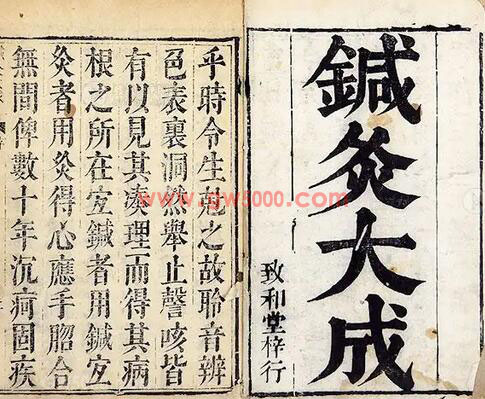 鍼灸大成
致和堂梓行
乎時令生尅之故聆音辨
色表裏洞燃舉止謦咳皆
有以見其湊理而得其病
根之所在宐鍼者用鍼宐
灸者用灸得心應手脗合
無間俾數十年沉痾固疾
www.gw5000.com